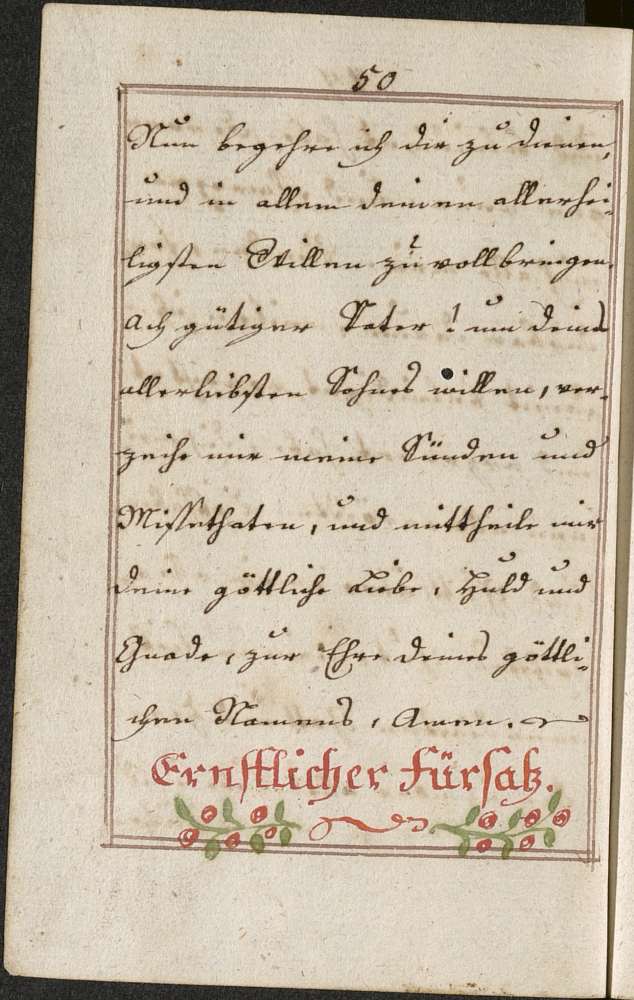 50
Nun begehre ich dir zu dienen,
und in allem deinen allerhei-
ligsten Willen zu vollbringen.
Ach gütiger Vater! um deines
allerliebsten Sohnes willen, ver-
zeihe mir meine Sünden und
Missethaten, und mittheile mir
deine göttliche Liebe, Huld und
Gnade, zur Ehre deines göttli-
chen Namens, Amen.
Ernstlicher Fürsatz.